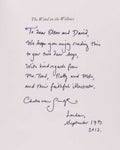 The Wind in the Willows
To dear Oscar and David,
We hope you enjoy reading this
to your two dear boys,
With kind regards from
Mr. Toad, Ratty and Mole,
and their faithful illustrator,
London,
September 19th
2012.